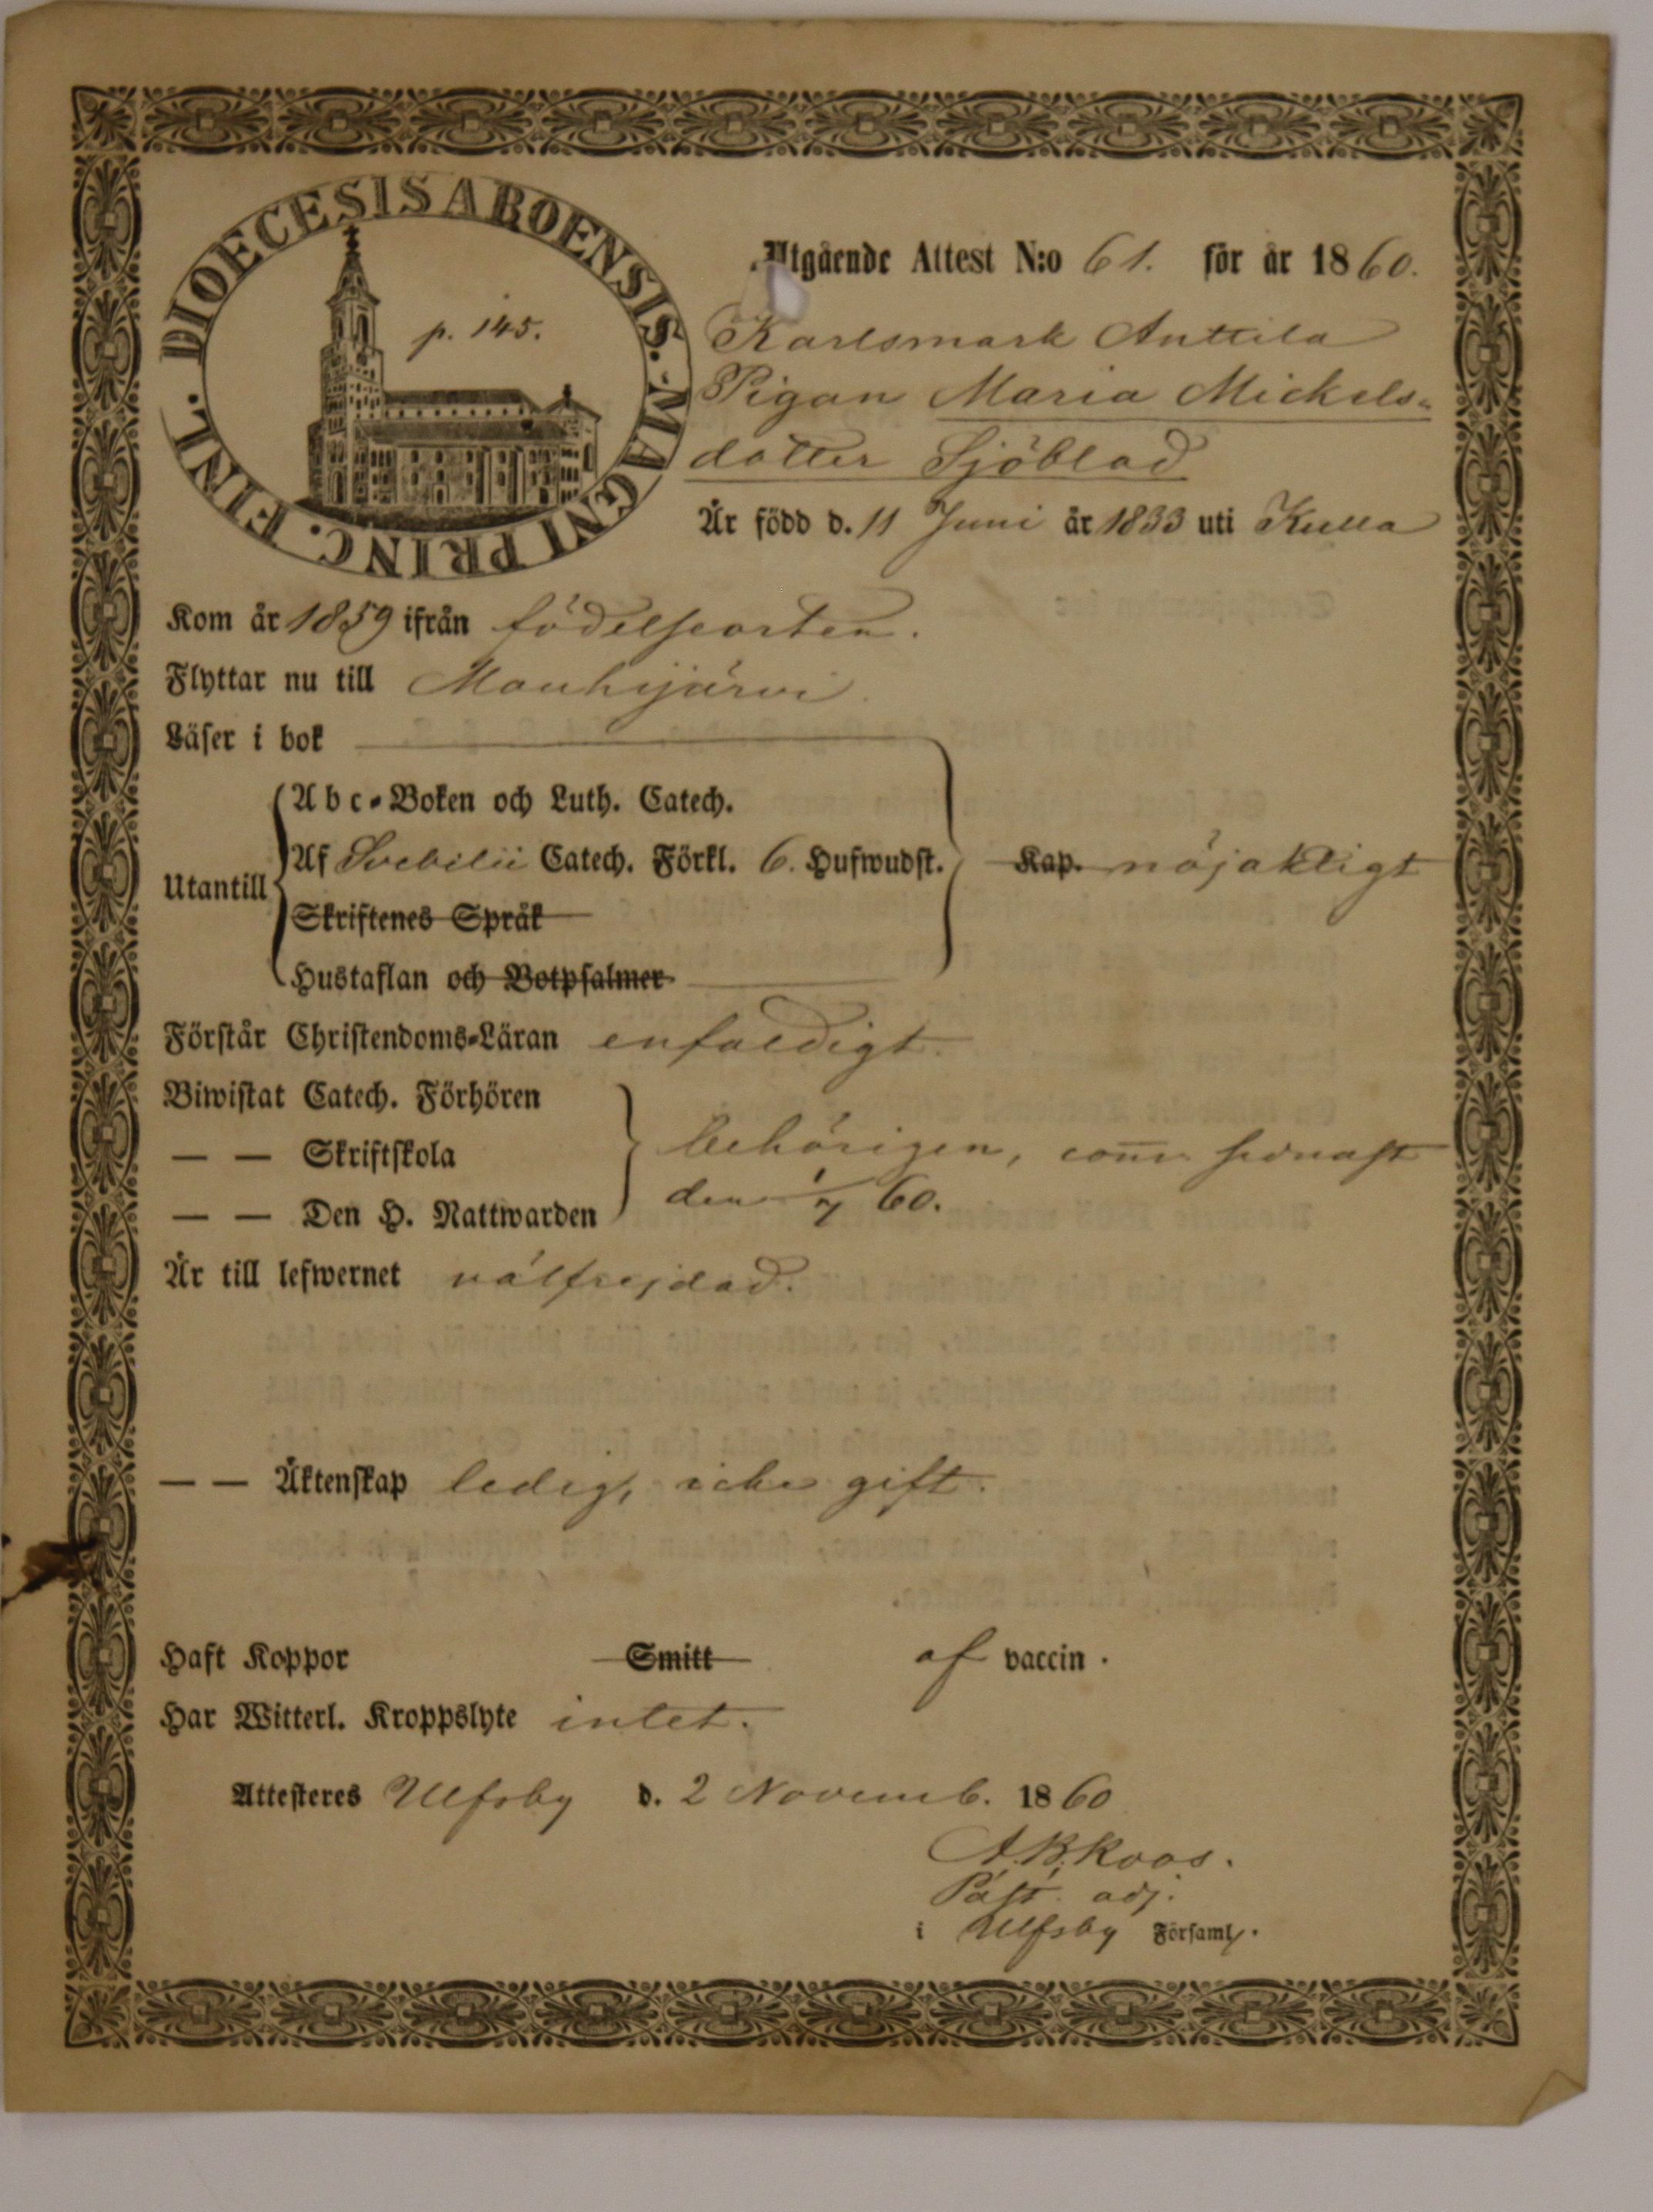 DIOECESIS ABOENSIS. MAGNI PRINC. FINL.
p. 145.
Utgående Attest N:o 61. för år 1860.
Karlsmark Anttila
Pigan Maria Mickels-
dotter Sjöblad
Är född d. 11 Juni år 1833 uti Kulla
Kom år 1859 ifrån födelseorten.
Flyttar nu till Mouhijärvi
Läser i bok
Abc-Boken och Luth. Catech.
Utantill Af Svebilii Catech. Förkl. 6. Hufwudst. Kap. nöjaktigt
Skriftenes Språk
Hustaflan och Botpsalmer
Förstår Christendoms-Läran enfaldigt.
Biwistat Catech. Förhören
— — Skriftskola behörigen, com̅. sednast
— — Den H. Nattwarden den 1/7 60.
Är till lefwernet välfrejdad.
— — Äktenskap ledig, icke gift.
Haft Koppor Smitt af vaccin.
Har Witterl. Kroppslyte intet.
Attesteres Ulfsby d. 2 Novemb. 1860
A. B. Roos.
Past. adj.
i Ulfsby Församl.